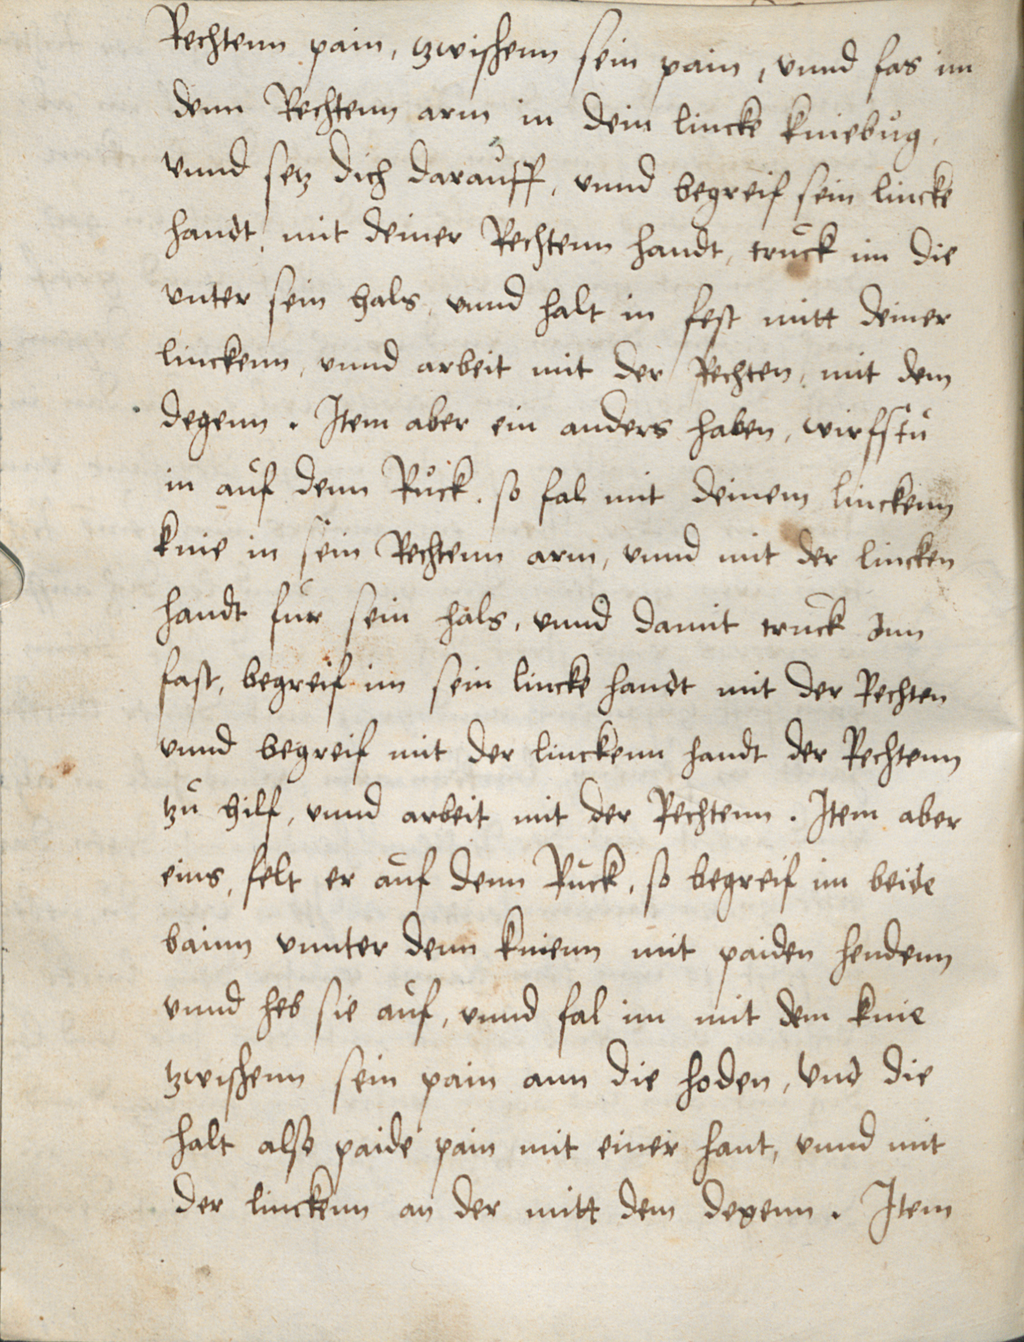 Rechtenn pain, tzwischenn sein pain, vnnd fas im
denn Rechtenn arm in dein lincke kniebug,
vnnd setz dich darauff, vnnd begreif sein lincke
handt, mit deiner Rechtenn handt, truck im die
vnter sein hals, vnnd halt in fest mitt deiner
linckenn, vnnd arbeit mit der Rechten, mit dem
degenn. Item aber ein anders haben, wirfstu
in auf denn Ruck. so fal mit deinem linckenn
knie in sein Rechtenn arm, vnnd mit der lincken
handt fur sein hals, vnnd damit truck inn
fast, begreif im sein lincke handt mit der Rechten
vnnd begreif mit der linckenn handt der Rechtenn
tzu hilf, vnnd arbeit mit der Rechtenn. Item aber
eins, felt er auf denn Ruck, so begreif im beide
bainn vnnter denn knienn mit paiden hendenn
vnnd heb sie auf, vnnd fal im mit dem knie
tzwischenn sein pain ann die hoden, vnd die
halt also paide pain mit einer hant, vnnd mit
der linckenn an der mitt dem degenn. Item